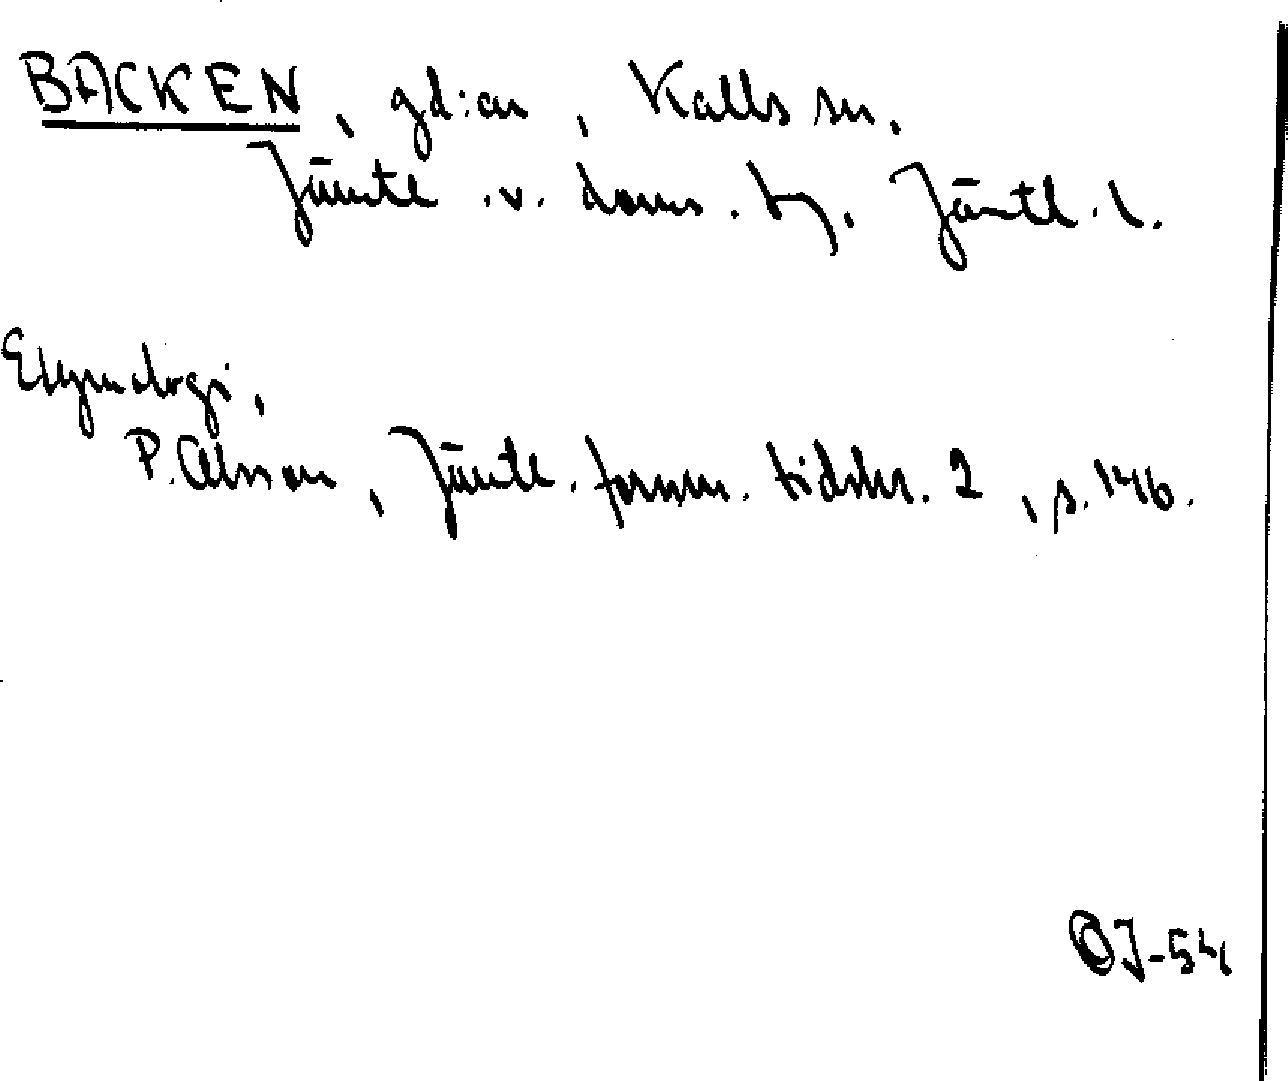 BACKEN, gd:ar, Kalls sn.
Jämtl. v. doms. hj. Jämtl. l.
Etymologi,
P. Olsson, Jämtl. fornm. tidskr. 2, s. 146.
OJ-54